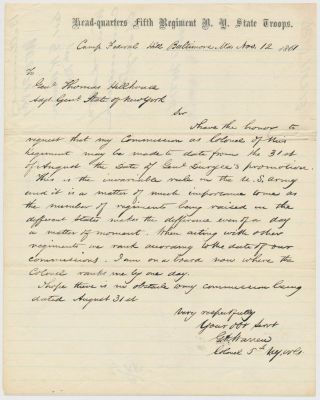 Head-quarters Fifth Regiment N. Y. State Troops.
Camp Federal Hill Baltimore Md Nov. 12 1861
To
Genl Thomas Hillhouse
Adjt. Genl State of New York
Sir
I have the honor to
request that my Commission as Colonel of this
Regiment may be made to date from the 31st
of August the date of Genl Duryee's promotion.
This is the invariable rule in the U.S. Army
and it is a matter of much importance to me as
the number of regiments being raised in the
different States makes the difference even of a day
a matter of moment. When acting with other
regiments we rank according to the date of our
commissions. I am on a board now where the
Colonel ranks me by one day.
I hope there is no obstacle to my commission being
dated August 31st
Very respectfully
Your obt Servt
G K Warren
Colonel 5th N.Y. Vols